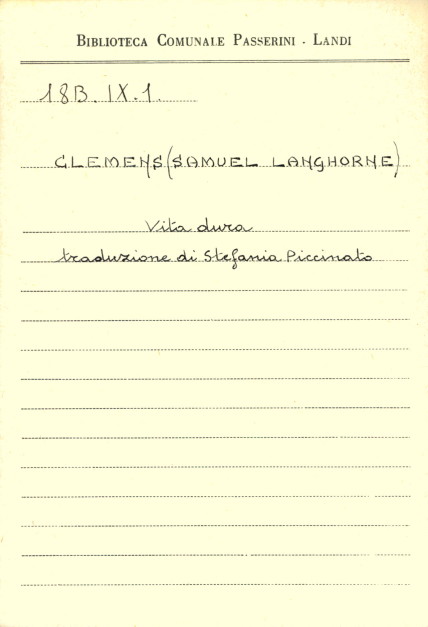 BIBLIOTECA COMUNALE PASSERINI - LANDI
18B.IX.1.
CLEMENS (SAMUEL LANGHORNE)
Vita dura
traduzione di Stefania Piccinato